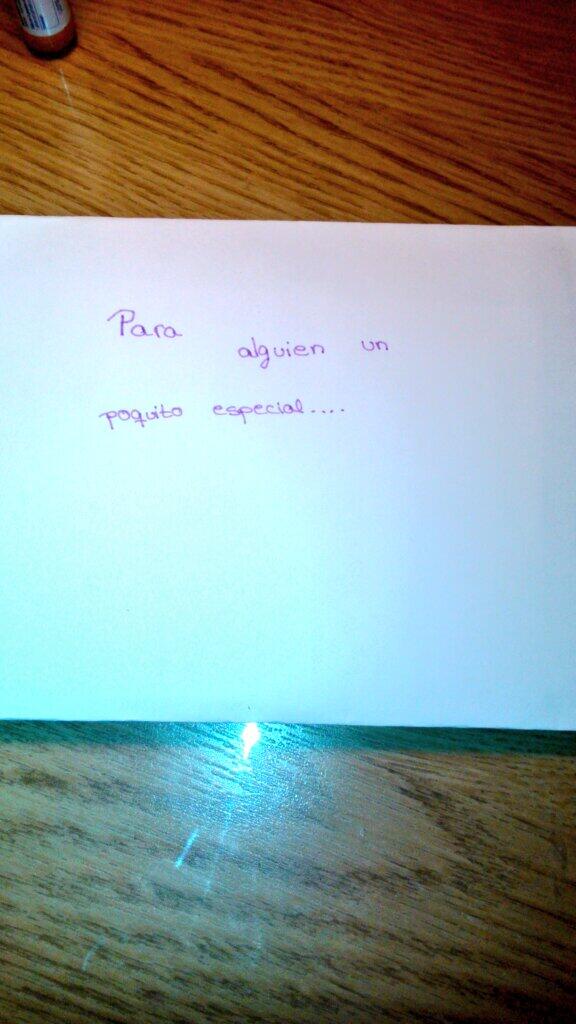 Para alguien un
poquito especial....